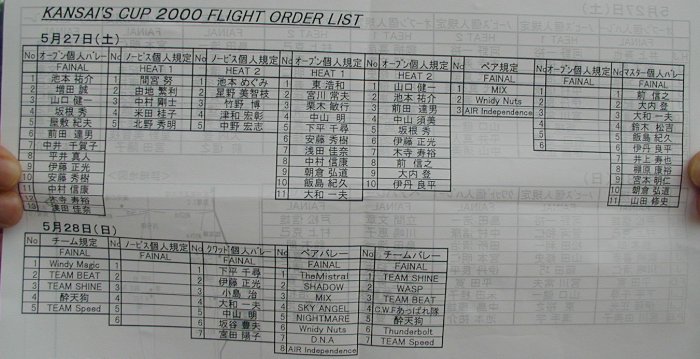 KANSAI'S CUP 2000 FLIGHT ORDER LIST
5月27日(土)
No オープン個人バレー
FAINAL
1 池本 祐介
2 増田 誠
3 山口 健一
4 坂根 秀
5 屋敷 紀夫
6 前田 達男
7 中井 千賀子
8 平井 真人
9 伊藤 正光
10 安藤 秀樹
11 中村 信康
12 木寺 寿裕
13 浅田 佳奈
No ノービス個人規定
HEAT 1
1 間宮 努
2 由地 繁利
3 中村 剛士
4 米田 桂子
5 北野 秀明
No ノービス個人規定
HEAT 2
1 池本 めぐみ
2 星野 美智枝
3 竹野 博
4 津和 宏彰
5 中野 宏志
No オープン個人規定
HEAT 1
1 東 浩和
2 宮川 栄夫
3 栗木 敏行
4 中山 明
5 下平 千尋
6 安藤 秀樹
7 浅田 佳奈
8 中村 信康
9 朝倉 弘道
10 飯島 紀久
11 大和 一夫
No オープン個人規定
HEAT 2
1 山口 健一
2 池本 祐介
3 前田 達男
4 中山 須美
5 坂根 秀
6 伊藤 正光
7 木寺 寿裕
8 前 信之
9 大内 登
10 伊丹 良平
No ペア規定
FAINAL
1 MIX
2 Wnidy Nuts
3 AIR Independence
No オープン個人規定
FAINAL
1
2
3
4
5
6
No マスター個人バレー
FAINAL
1 前 信之
2 大内 登
3 大和 一夫
4 鈴木 松吉
5 飯島 紀久
6 伊丹 良平
7 井上 寿也
8 棚原 康裕
9 宮本 朝仁
10 朝倉 弘道
11 山田 修史
5月28日(日)
No チーム規定
FAINAL
1 Windy Magic
2 TEAM BEAT
3 TEAM SHINE
4 酔天狗
5 TEAM Speed
No ノービス個人規定
FAINAL
1
2
3
4
5
6
No クワッド個人バレー
FAINAL
1 下平 千尋
2 伊藤 正光
3 小島 治
4 大和 一夫
5 中山 明
6 坂谷 豊夫
7 宮田 陽子
No ペアバレー
FAINAL
1 TheMistral
2 SHADOW
3 MIX
4 SKY ANGEL
5 NIGHTMARE
6 Wnidy Nuts
7 D.N.A
8 AIR Independence
No チームバレー
FAINAL
1 TEAM SHINE
2 WASP
3 TEAM BEAT
4 C.W.Fあっぱれ隊
5 酔天狗
6 Thunderbolt
7 TEAM Speed